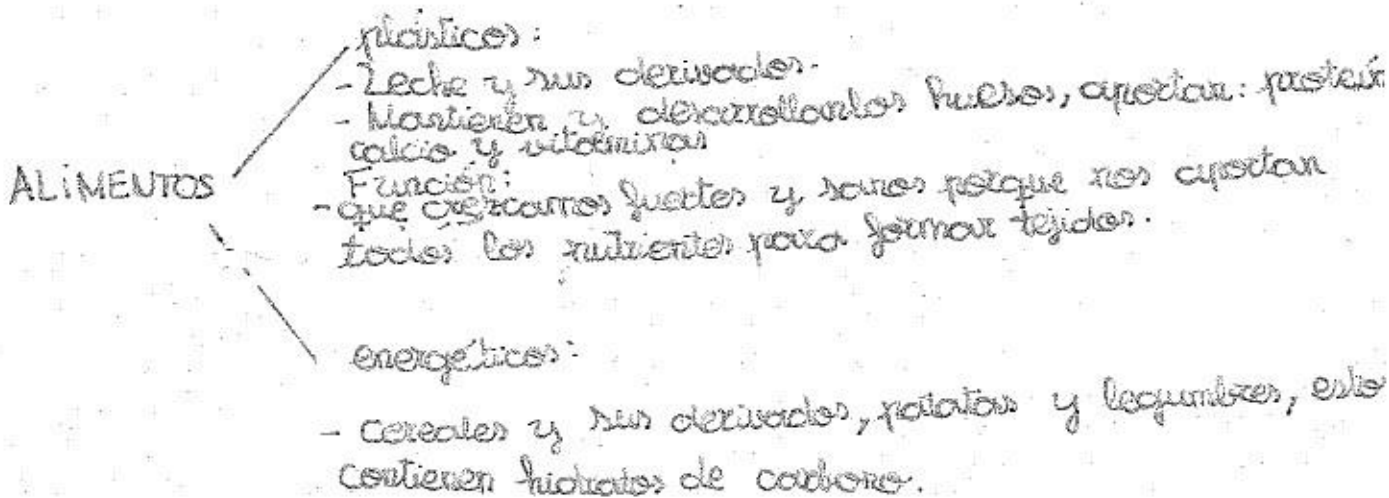 plásticos:
- Leche y sus derivados.
- Mantienen y desarrollan los huesos, aportan: proteín
calcio y vitaminas
ALIMENTOS
Función:
- que crezcamos fuertes y sanos porque nos aportan
todos los nutrientes para formar tejidos.
energéticos:
- Cereales y sus derivados, patatas y legumbres, esto
contienen hidratos de carbono.